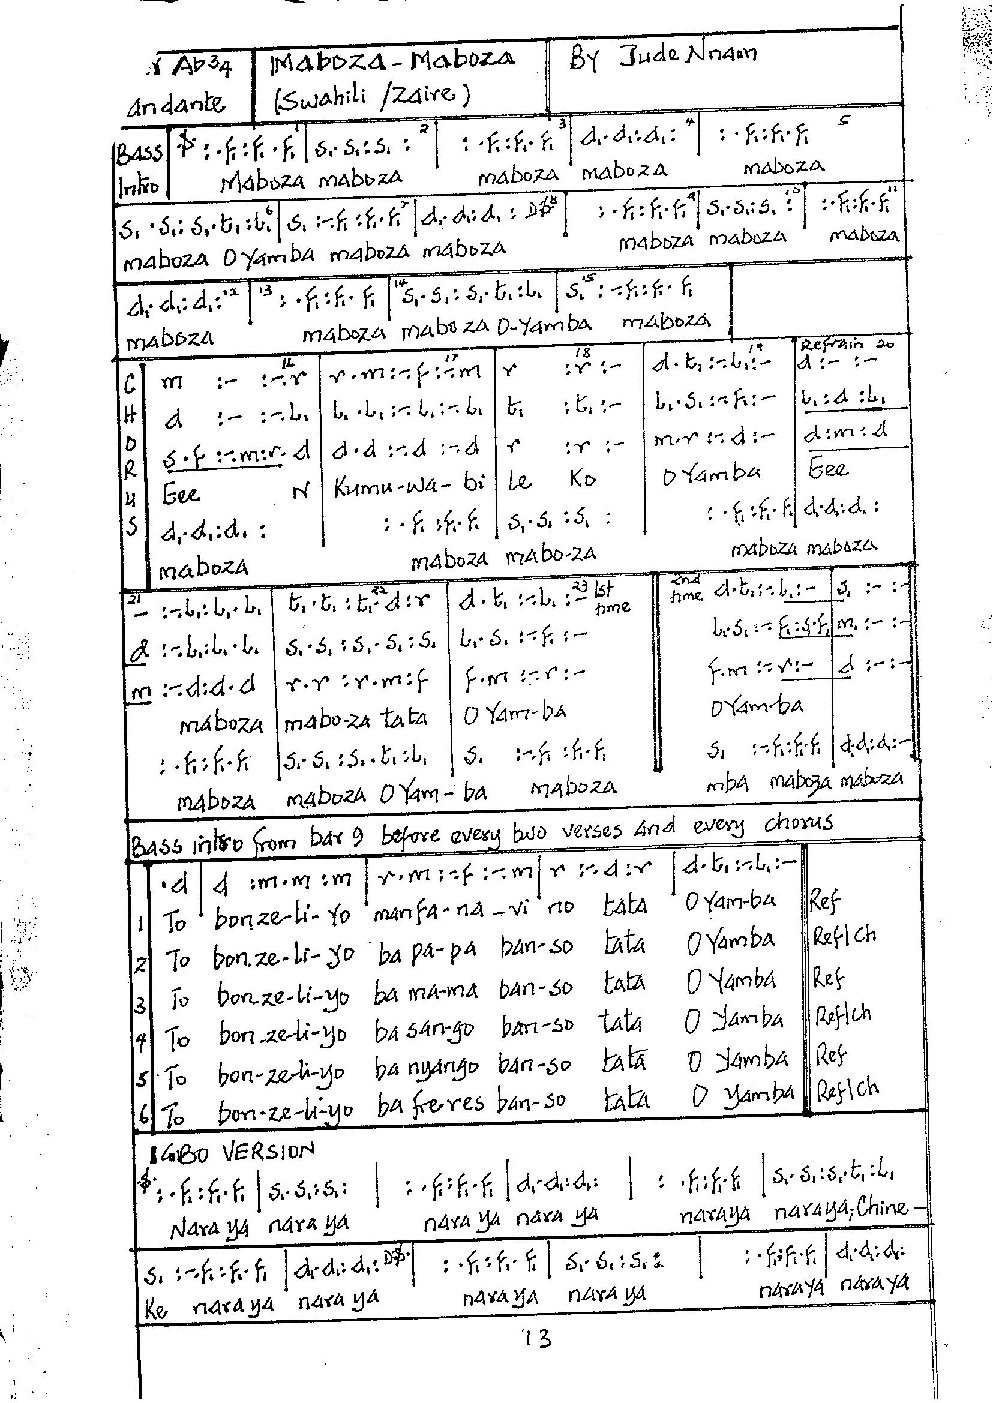 Ab 3/4 Maboza - Maboza By Jude Nnam
Andante (Swahili / Zaire)
Bass 𝄋 : .f₁ : f₁ . f₁ 1 | s₁ . s₁ : s₁ : 2 | : .f₁ : f₁ . f₁ 3 | d₁ . d₁ : d₁ : 4 | : .f₁ : f₁ . f₁ 5
Intro Maboza maboza maboza maboza maboza
s₁ . s₁ : s₁ . t₁ : l₁ 6 | s₁ : - . f₁ : f₁ . f₁ 7 | d₁ . d₁ : d₁ : D𝄋 8 | : .f₁ : f₁ . f₁ 9 | s₁ . s₁ : s₁ : 10 | : .f₁ : f₁ . f₁ 11
maboza O Yamba maboza maboza maboza maboza maboza
d₁ . d₁ : d₁ : 12 | 13 : .f₁ : f₁ . f₁ | 14 s₁ . s₁ : s₁ . t₁ : l₁ | s₁ 15 : - . f₁ : f₁ . f₁
maboza maboza maboza O-Yamba maboza
CHORUS
m : - : - . r 16 | r . m : - . f : - . m 17 | r : r : - 18 | d . t₁ : - . l₁ : - 19 | Refrain 20 d : - : -
d : - : - . l₁ | l₁ . l₁ : - . l₁ : - . l₁ | t₁ : t₁ : - | l₁ . s₁ : - . f₁ : - | l₁ : d : l₁
s . f : - . m : r . d | d . d : - . d : - . d | r : r : - | m . r : - . d : - | d : m : d
Eee N Kumu-wa-bi Le Ko O Yamba Eee
d₁ . d₁ : d₁ : | : .f₁ : f₁ . f₁ | s₁ . s₁ : s₁ : | : .f₁ : f₁ . f₁ | d₁ . d₁ : d₁ :
maboza maboza mabo-za maboza maboza
21 - : - . l₁ : l₁ . l₁ | t₁ . t₁ : t₁ . d : r 22 | d . t₁ : - . l₁ : - 23 1st time || 2nd time d . t₁ : - . l₁ : - | s₁ : - : -
d : - . l₁ : l₁ . l₁ | s₁ . s₁ : s₁ . s₁ : s₁ | l₁ . s₁ : - . f₁ : - || l₁ . s₁ : - f₁ : s₁ . f₁ | m₁ : - : -
m : - . d : d . d | r . r : r . m : f | f . m : - . r : - || f . m : - . r : - | d : - : -
maboza mabo-za tata O Yam-ba O Yam-ba
: .f₁ : f₁ . f₁ | s₁ . s₁ : s₁ . t₁ : l₁ | s₁ : - f₁ : f₁ . f₁ || s₁ : - f₁ : f₁ . f₁ | d₁ . d₁ : d₁ : -
maboza maboza O Yam-ba maboza mba maboza maboza
Bass intro from bar 9 before every two verses and every chorus
. d | d : m . m : m | r . m : - . f : - . m | r : - . d : r | d . t₁ : - . l₁ : -
1 To bon.ze-li-yo manfa-na-vi no tata O Yam-ba Ref
2 To bon.ze-li-yo ba pa-pa ban-so tata O Yamba Ref/Ch
3 To bon-ze-li-yo ba ma-ma ban-so tata O Yamba Ref
4 To bon-ze-li-yo ba san-go ban-so tata O Yamba Ref/Ch
5 To bon-ze-li-yo ba nyango ban-so tata O Yamba Ref
6 To bon-ze-li-yo ba freres ban-so tata O Yamba Ref/Ch
IGBO VERSION
𝄋 : .f₁ : f₁ . f₁ | s₁ . s₁ : s₁ : | : .f₁ : f₁ . f₁ | d₁ . d₁ : d₁ : | : .f₁ : f₁ . f₁ | s₁ . s₁ : s₁ . t₁ : l₁
Nara ya nara ya nara ya nara ya naraya naraya, Chine-
s₁ : - . f₁ : f₁ . f₁ | d₁ . d₁ : d₁ : D𝄋 | : .f₁ : f₁ . f₁ | s₁ . s₁ : s₁ : | : .f₁ : f₁ . f₁ | d₁ . d₁ : d₁ :
Ke nara ya nara ya nara ya nara ya naraya naraya
13